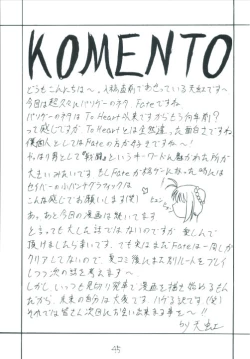 KOMENTO
どうもこんにちは〜。小稿直前であせっている天虹です〜
今回は超久々バリゲーのネタ、Fateですね
バリゲーのネタは To Heart以来ですからもう何年前？
って感じですが To Heartとは全然違った面白さですね
僕個人としてはFateの方が好きですね〜！
やはり月として"斬鉄"というキーワードが魅かれた所が
大きいみたいです もしFateが格ゲーになった時には
セイバーの小パンチグラフィックは
こんな感じでお願いします(笑)
あ、あと今回の漫画は続いてます
とっても大した話ではないのですが 楽しんで
頂けましたら幸いです。でも実はまだFateは一周しか
クリアしてないので、夏コミ後にまた別ルートをプレイ
しつつ次の話を考えます〜
しかしいつも見切り発車で漫画を描き始めるもん
だから 未来の自分は大変です、ハゲる訳です(笑)
それでは皆さん次回も又お会い出来ます事を〜！！
by 天虹
45